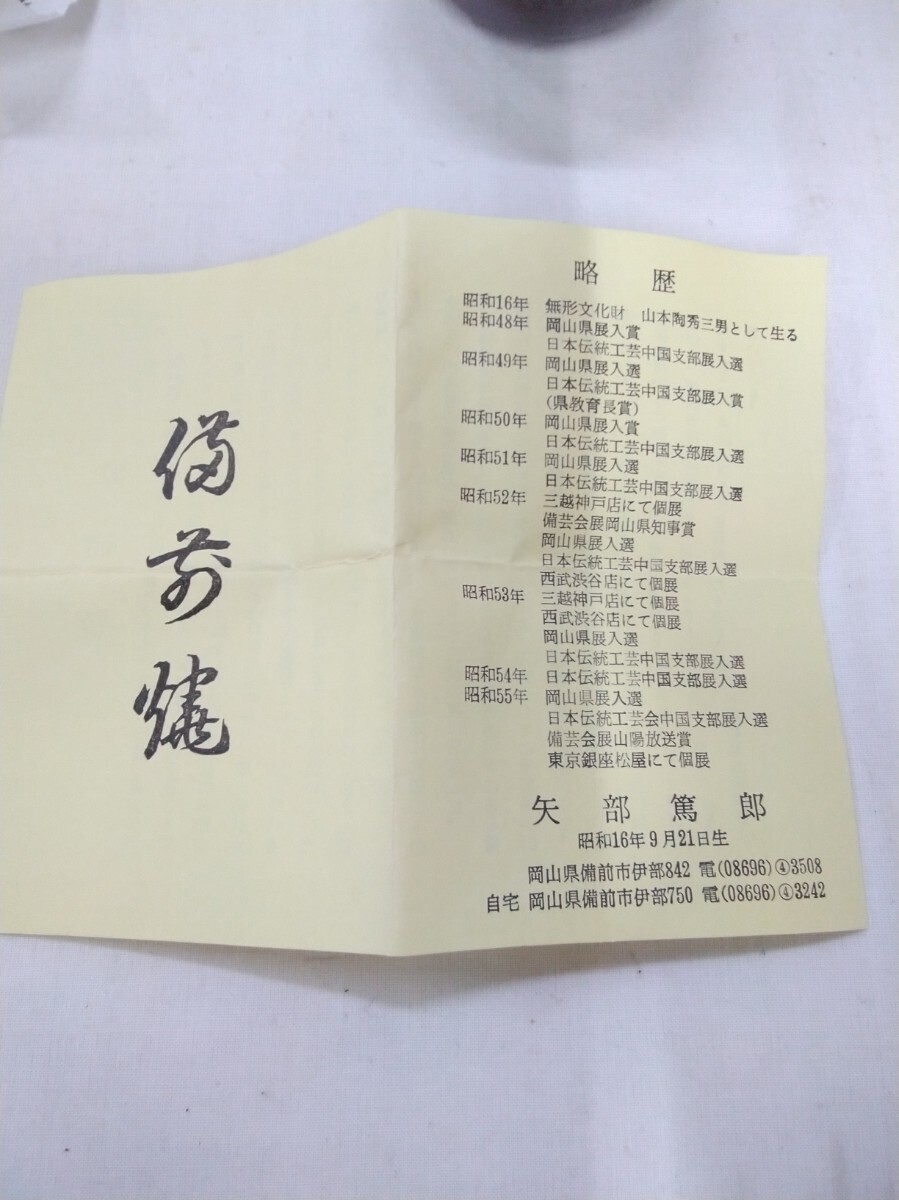 備前焼
略歴
昭和16年 無形文化財 山本陶秀三男として生る
昭和48年 岡山県展入賞
日本伝統工芸中国支部展入選
昭和49年 岡山県展入選
日本伝統工芸中国支部展入賞
(県教育長賞)
昭和50年 岡山県展入賞
日本伝統工芸中国支部展入選
昭和51年 岡山県展入選
日本伝統工芸中国支部展入選
昭和52年 三越神戸店にて個展
備芸会展岡山県知事賞
岡山県展入選
日本伝統工芸中国支部展入選
西武渋谷店にて個展
昭和53年 三越神戸店にて個展
西武渋谷店にて個展
岡山県展入選
日本伝統工芸中国支部展入選
昭和54年 日本伝統工芸中国支部展入選
昭和55年 岡山県展入選
日本伝統工芸会中国支部展入選
備芸会展山陽放送賞
東京銀座松屋にて個展
矢部篤郎
昭和16年9月21日生
岡山県備前市伊部842 電(08696)④3508
自宅 岡山県備前市伊部750 電(08696)④3242